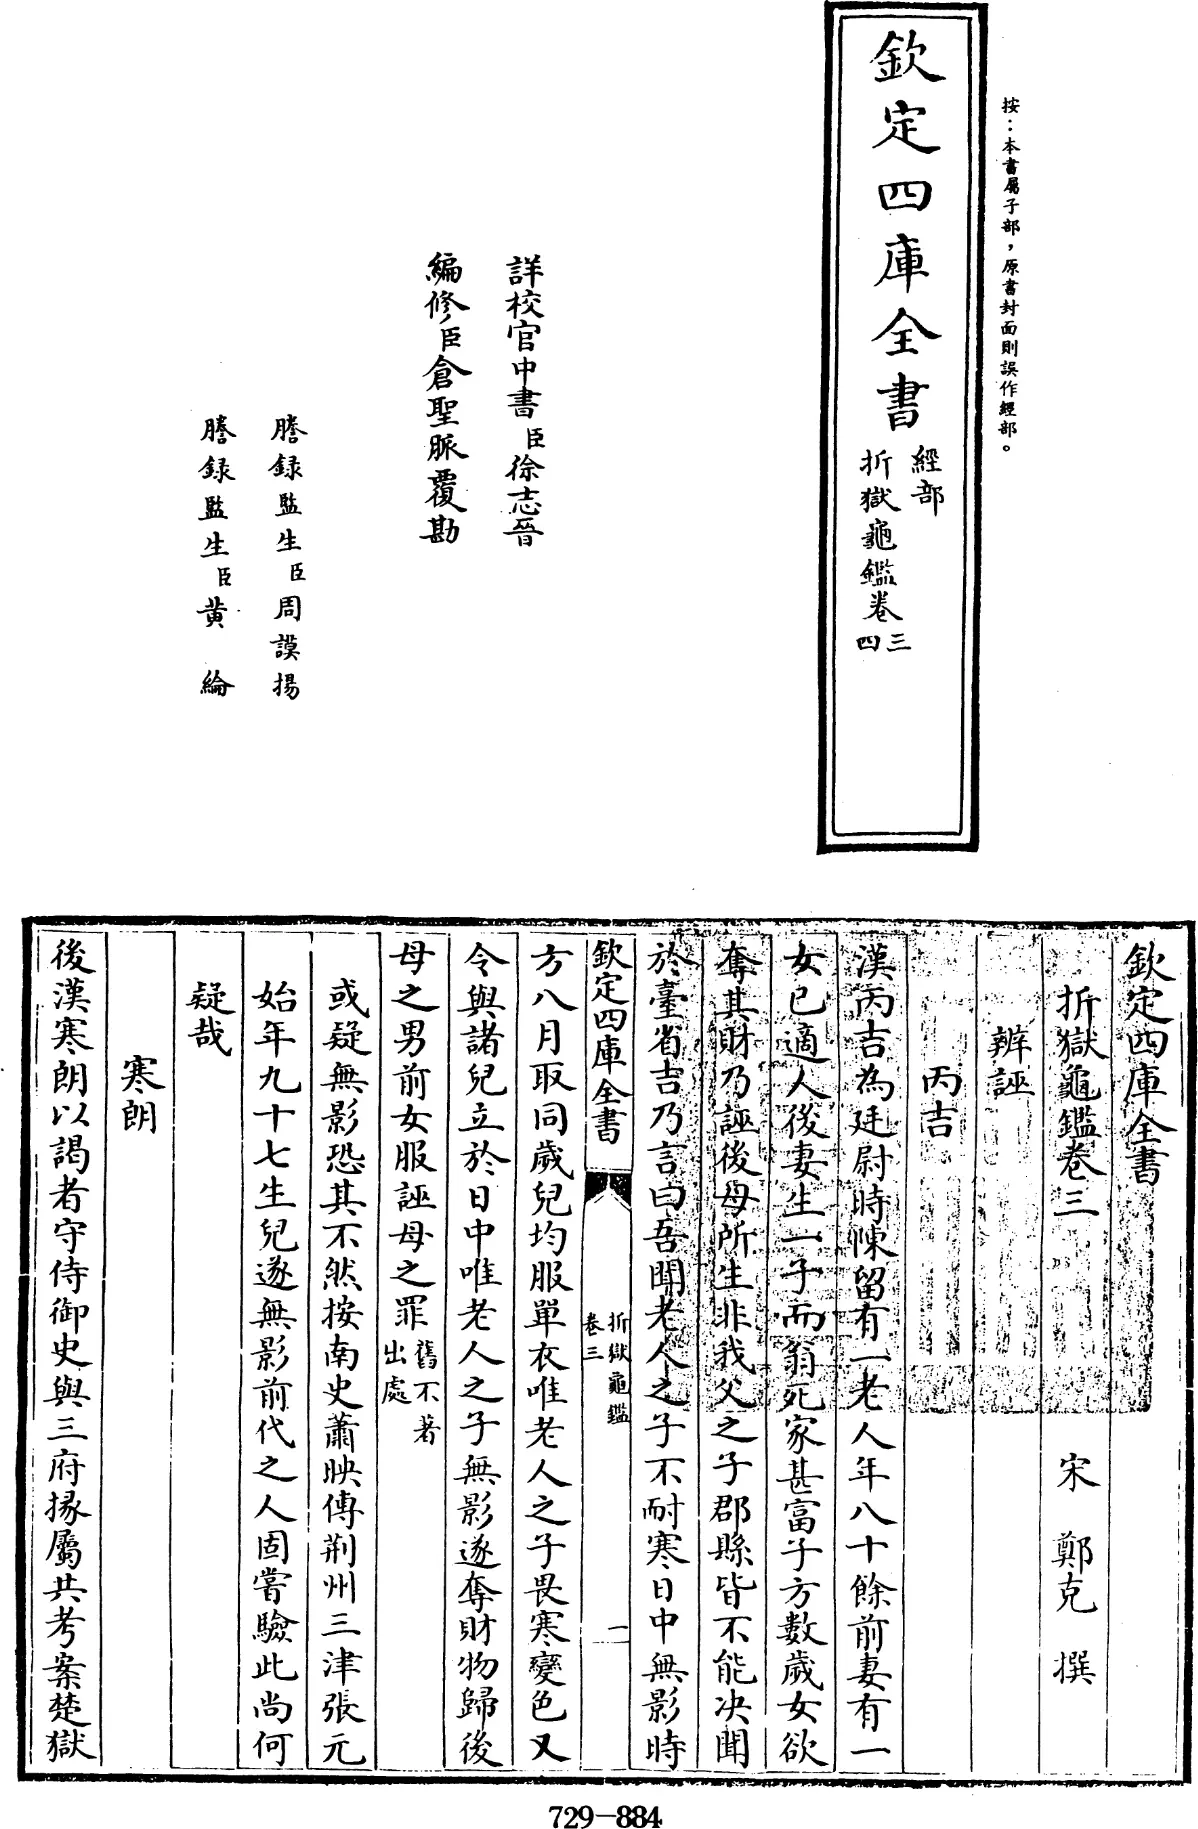 按：本書屬子部，原書封面則誤作經部。
欽定四庫全書
經部
折獄龜鑑卷三
四
詳校官中書臣徐志晉
編修臣倉聖脈覆勘
謄錄監生臣周謨揚
謄錄監生臣黃綸
欽定四庫全書
折獄龜鑑卷三
宋 鄭克 撰
辨誣
丙吉
漢丙吉為廷尉時陳留有一老人年八十餘前妻有一
女已適人後妻生一子而翁死家甚富子方數歲女欲
奪其財乃誣後母所生非我父之子郡縣皆不能决聞
於臺省吉乃言曰吾聞老人之子不耐寒日中無影時
欽定四庫全書
折獄龜鑑
卷三
一
方八月取同歲兒均服單衣唯老人之子畏寒變色又
令與諸兒立於日中唯老人之子無影遂奪財物歸後
母之男前女服誣母之罪舊不著
出處
或疑無影恐其不然按南史蕭映傳荆州三津張元
始年九十七生兒遂無影前代之人固嘗驗此尚何
疑哉
寒朗
後漢寒朗以謁者守侍御史與三府掾屬共考案楚獄
729-884